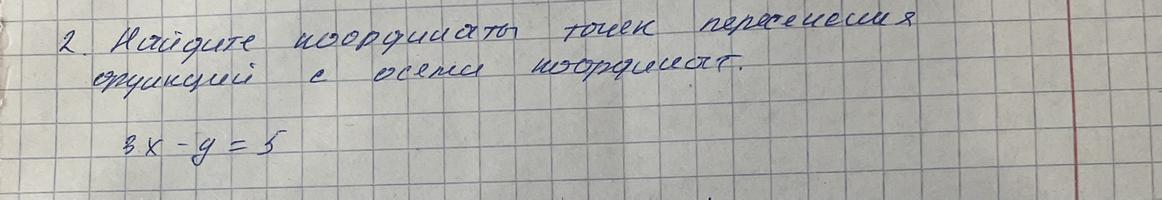 2. Найдите координаты точек пересечения
функций с осями координат.
3x - y = 5